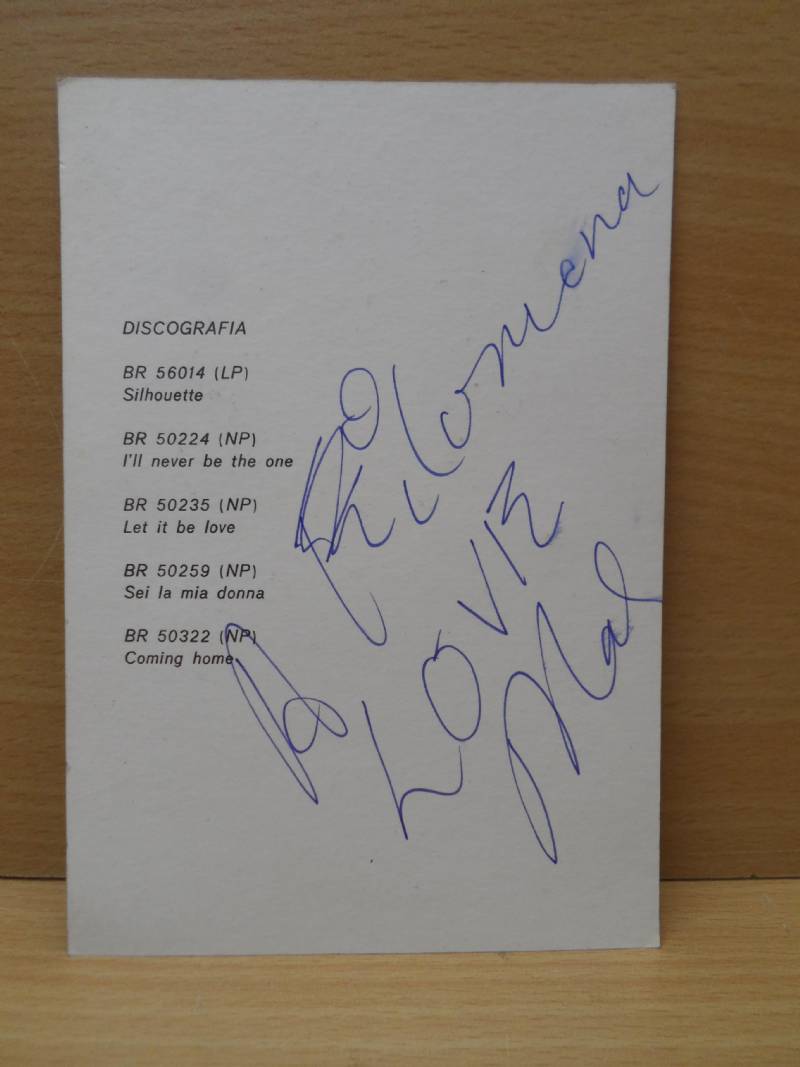 DISCOGRAFIA
BR 56014 (LP)
Silhouette
BR 50224 (NP)
I'll never be the one
BR 50235 (NP)
Let it be love
BR 50259 (NP)
Sei la mia donna
BR 50322 (NP)
Coming home
Filomena
LOVE
Mal